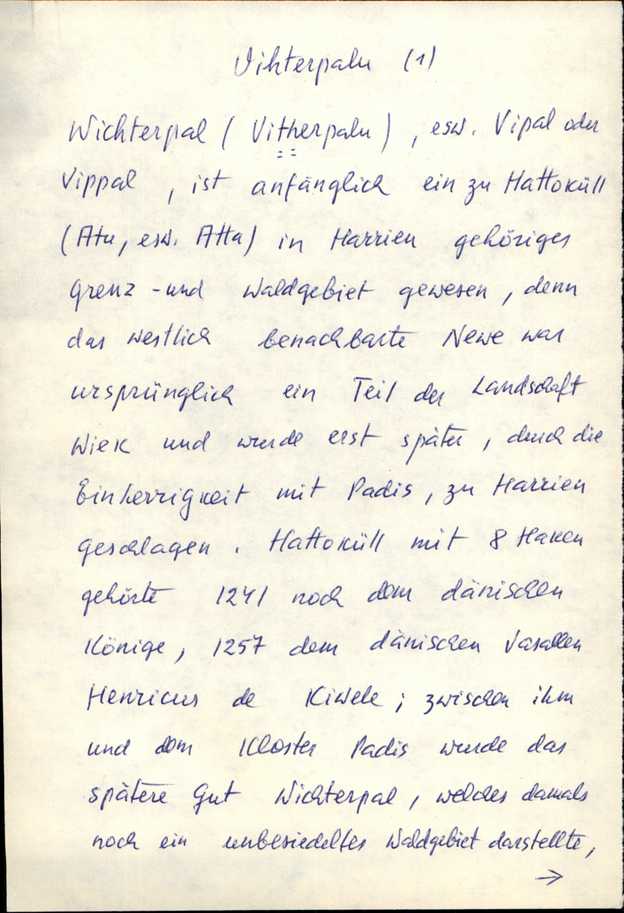 Vihterpalu (1)
Wichterpal (Vitherpalu), esw. Vipal oder
Vippal, ist anfänglich ein zu Hattoküll
(Atu, esw. Atta) in Harrien gehöriges
Grenz- und Waldgebiet gewesen, denn
das westlich benachbarte Newe war
ursprünglich ein Teil der Landschaft
Wiek und wurde erst später, durch die
Einherrigkeit mit Padis, zu Harrien
geschlagen. Hattoküll mit 8 Haken
gehörte 1241 noch dem dänischen
Könige, 1257 dem dänischen Vasallen
Henricus de Kiwele; zwischen ihm
und dem Kloster Padis wurde das
spätere Gut Wichterpal, welches damals
noch ein unbesiedeltes Waldgebiet darstellte,
→